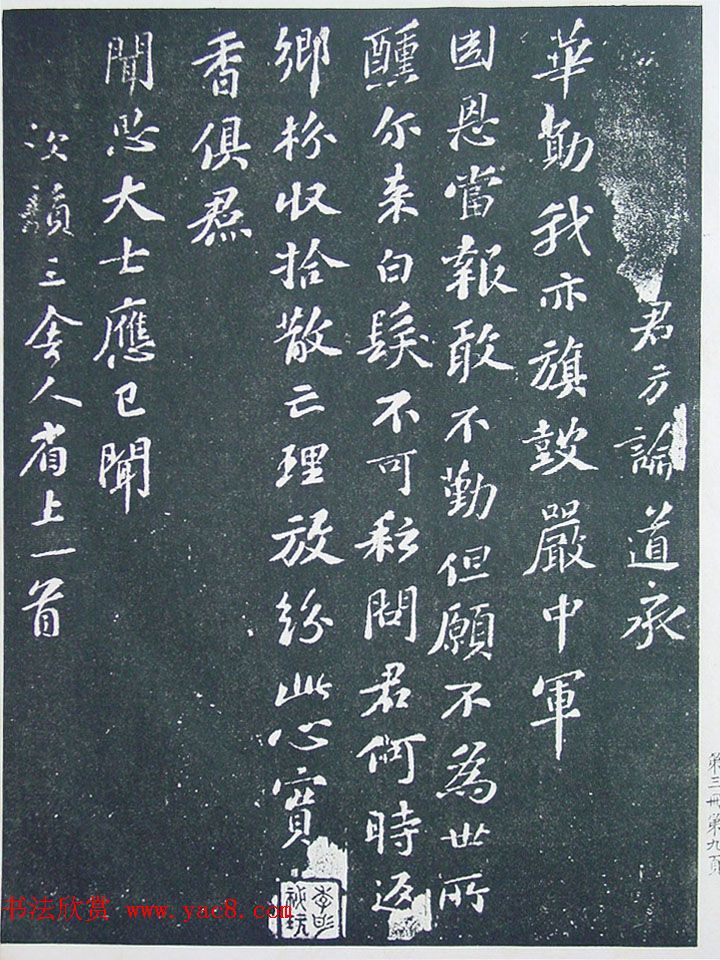 君方論道承
華勛我亦旗鼓嚴中軍
国恩當報敢不勤但願不為世所
醺尔来白髮不可耘問君何時返
鄉枌收拾散亡理放紛此心實
香俱焄
聞思大士應已聞
次韻三舍人省上一首
第三冊第九頁
书法欣赏 www.yac8.com